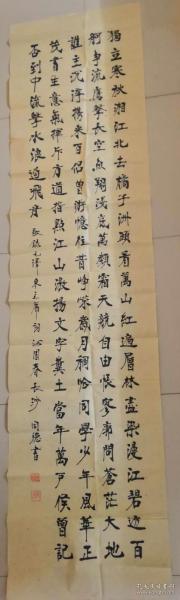 獨立寒秋湘江北去橘子洲頭看萬山紅遍層林盡染漫江碧透百
舸爭流鷹擊長空魚翔淺底萬類霜天競自由悵寥廓問蒼茫大地
誰主沉浮携來百侶曾游憶往昔崢嶸歲月稠恰同學少年風華正
茂書生意氣揮斥方遒指點江山激揚文字糞土當年萬戶侯曾記
否到中流擊水浪遏飛舟 敬錄毛澤東主席詞沁園春長沙 德書